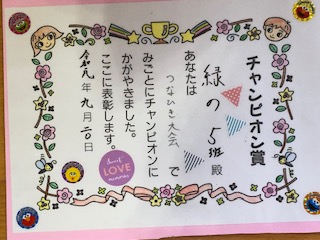 チャンピオン賞
緑の5班殿
あなたは
つなひき大会で
みごとにチャンピオンに
かがやきました。
ここに表彰します。
令和元年九月二〇日
LOVE